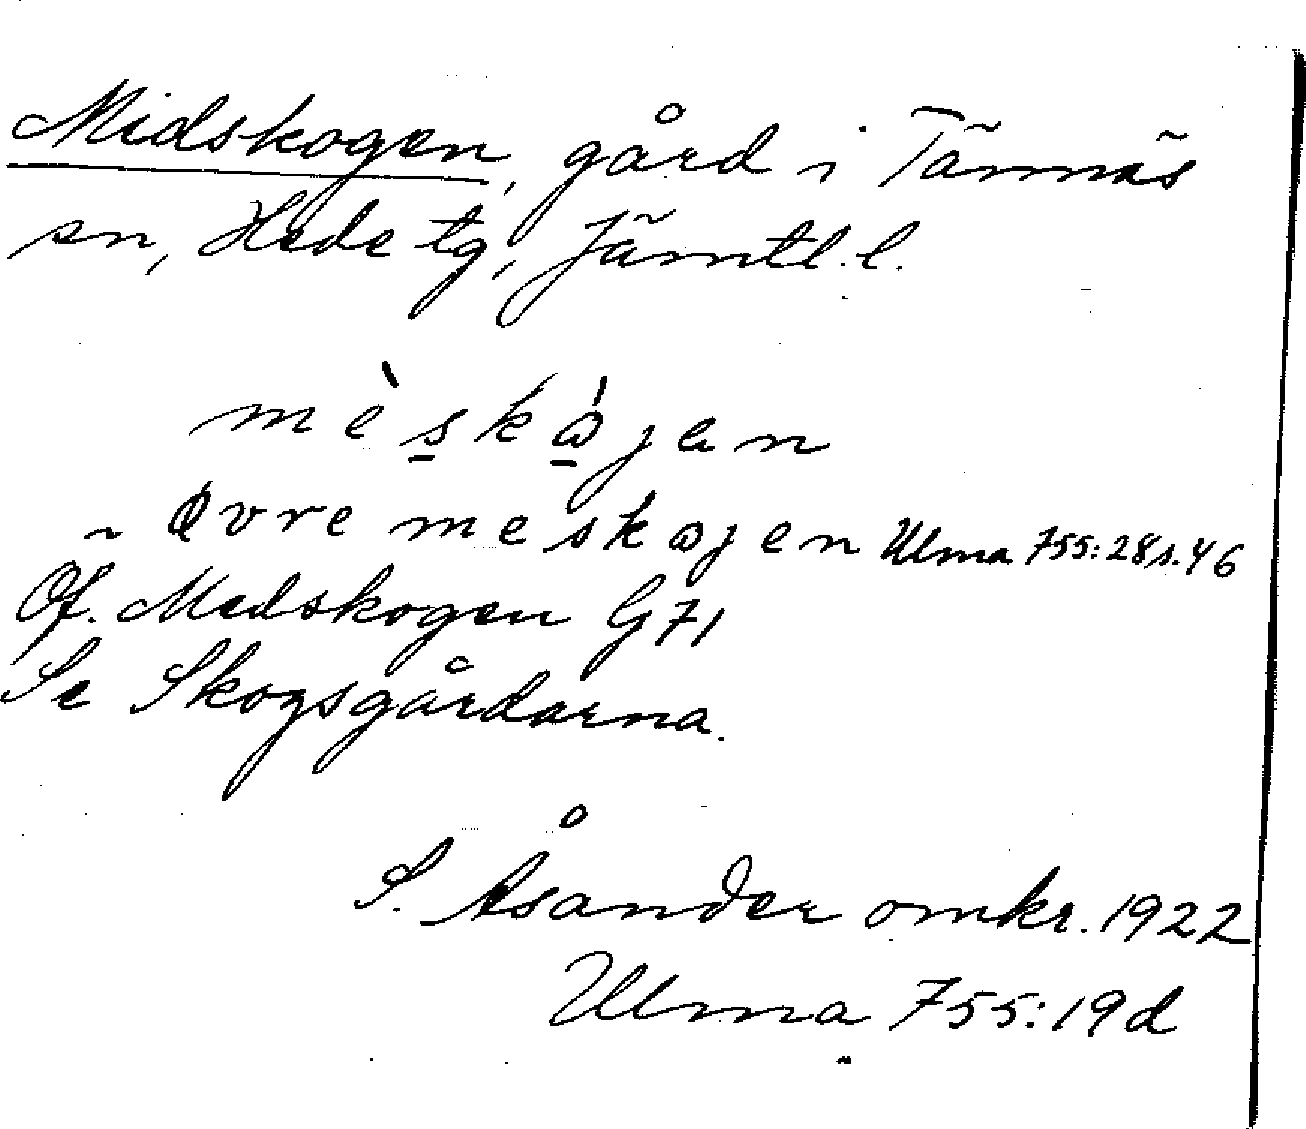 Midskogen, gård i Tännäs
sn, Hede tg, Jämtl. l.
mèskòjen
~ Øvre meskøjen Ulma 755:28 s. 46
Öf. Medskogen G 71
Se Skogsgårdarna.
S. Åsander omkr. 1922
Ulma 755:19d